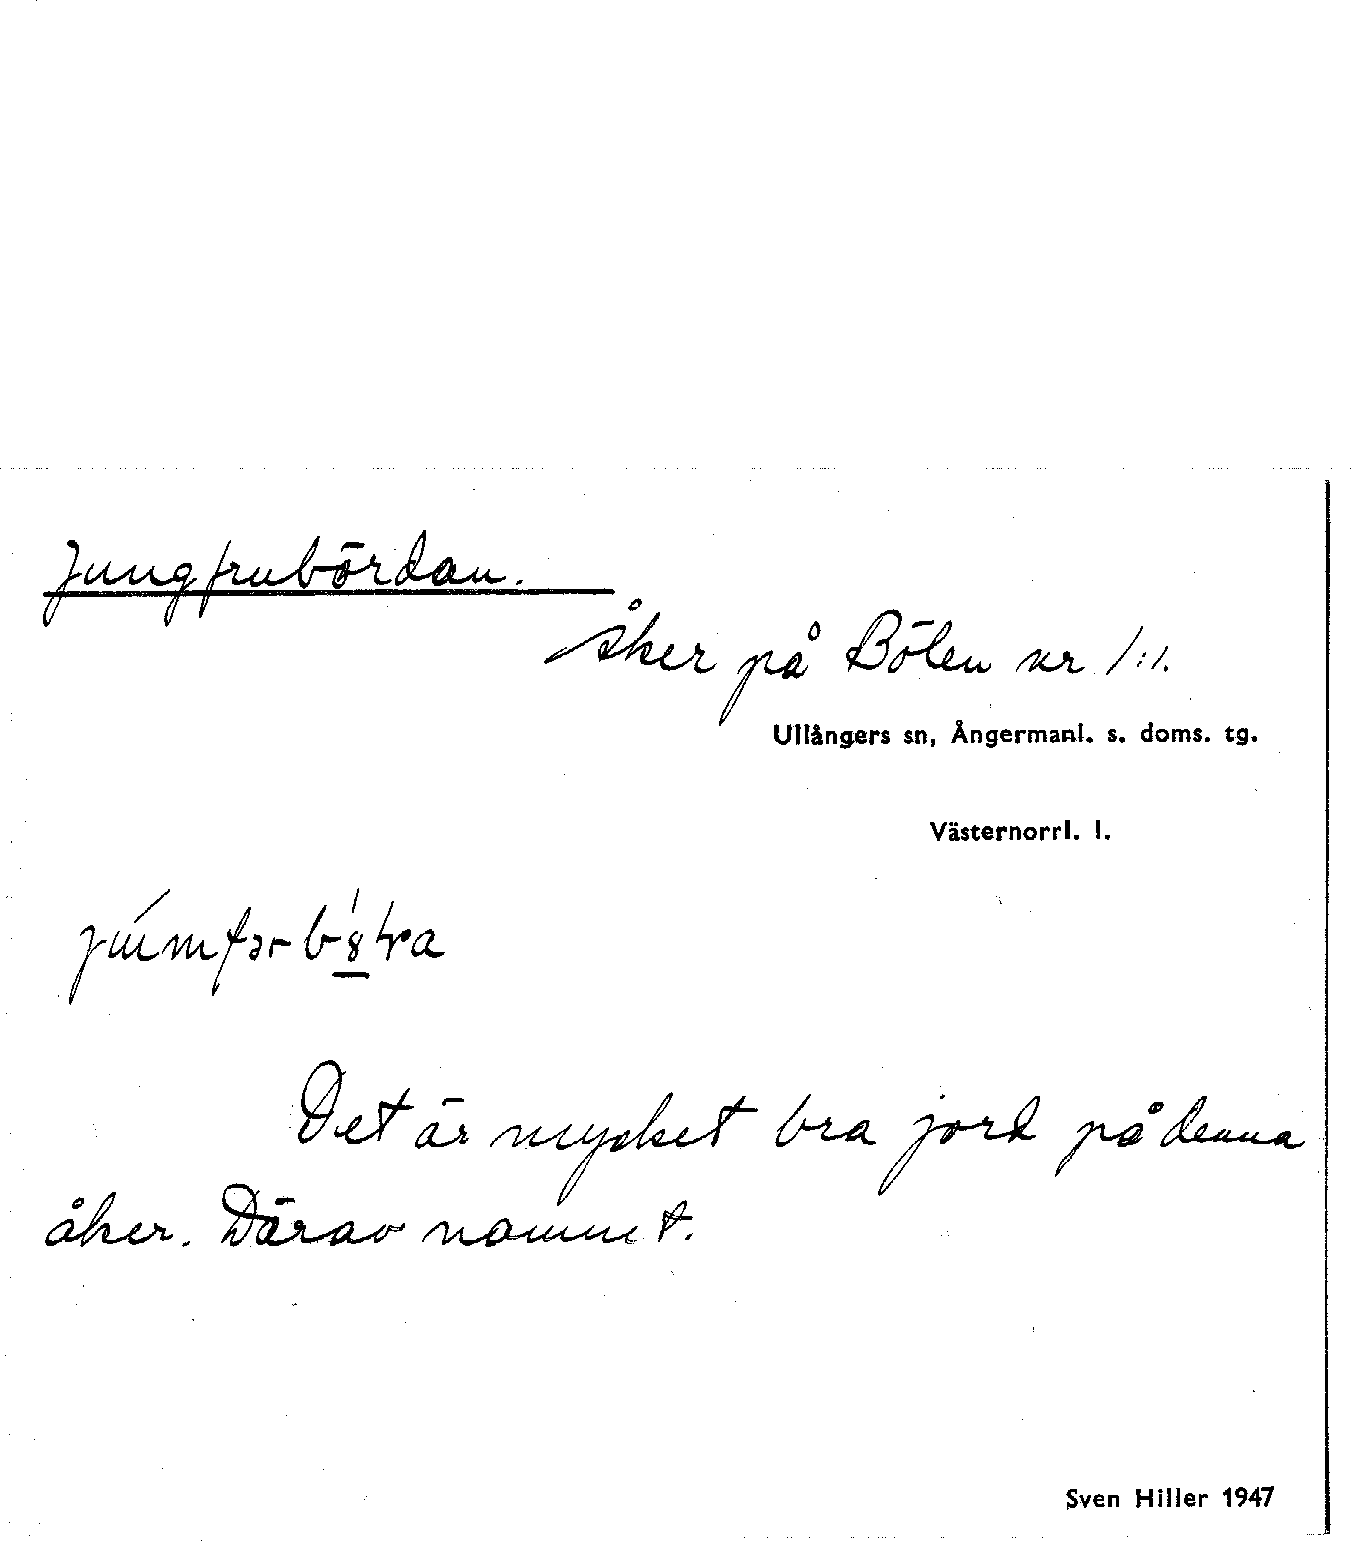 Jungfrubördan.
Åker på Bölen nr 1:1.
Ullångers sn, Ångermanl. s. doms. tg.
Västernorrl. l.
Det är mycket bra jord på denna
åker. Därav namnet.
Sven Hiller 1947